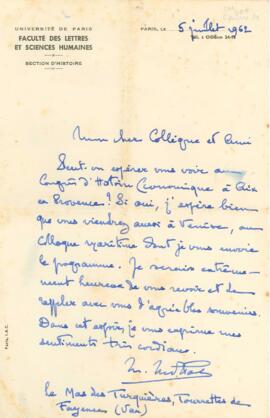 UNIVERSITÉ DE PARIS
FACULTÉ DES LETTRES
ET SCIENCES HUMAINES
SECTION D'HISTOIRE
PARIS, LE 5 juillet 1962
Mon cher Collègue et ami
Peut-on espérer vous voir au
Congrès d'Histoire Economique à Aix
en Provence? Si oui, j'espère bien
que vous viendrez aussi à Venise, au
Colloque maritime dont je vous envoie
le programme. Je serais extrême-
ment heureux de vous revoir et de
rappeler avec vous d'agréables souvenirs.
Dans cet espoir, je vous exprime mes
sentiments très cordiaux.
Le Mas des Turquières, Tourrettes de
Fayence (Var)